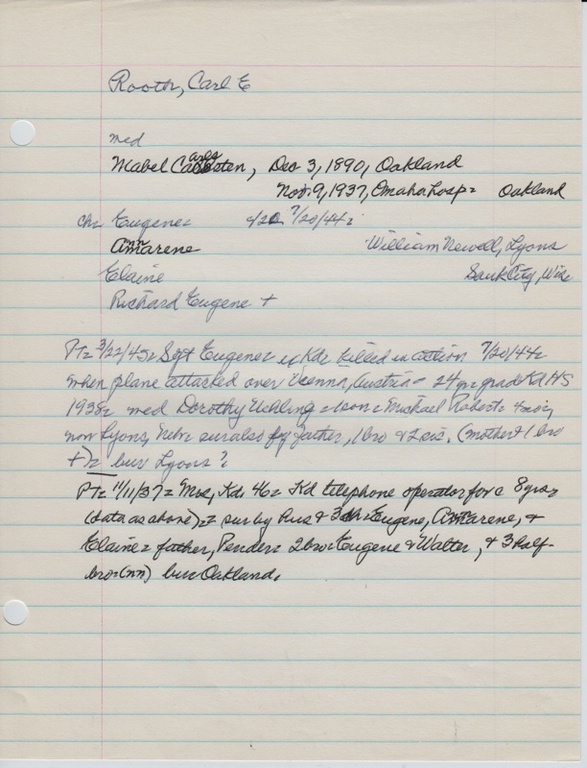 Rooth, Carl E
med
Mabel Carlsten, Dec 3, 1890, Oakland
Nov. 9, 1937, Omaha hosp = Oakland
ch = Eugene = 7/20/44 =
Annarene William Newell, Lyons
Elaine Sauk City, Wis
Richard Eugene +
PT = 3/22/45 = Sgt Eugene = Kd = killed in action 7/20/44 =
when plane attacked over Vienna, Austria = 24 yr = grad Kd HS
1938 = med Dorothy Uehling = 1 son = Michael Robert = 4
now Lyons, Nebr = sur also by father, 1 bro & 2 sis. (mother & 1 bro
+) = bur Lyons?
PT = 11/11/37 = Mrs, Kd = 46 = Kd telephone operator for c 8 yrs =
(data as above) = sur by Hus & 3 ch = Eugene, Annarene, &
Elaine = father, Pender = 2 bro = Eugene & Walter, & 3 half-
bro = (nn) bur Oakland.